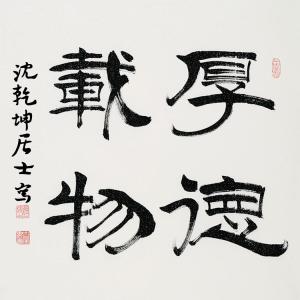 厚德
載物
沈乾坤居士寫